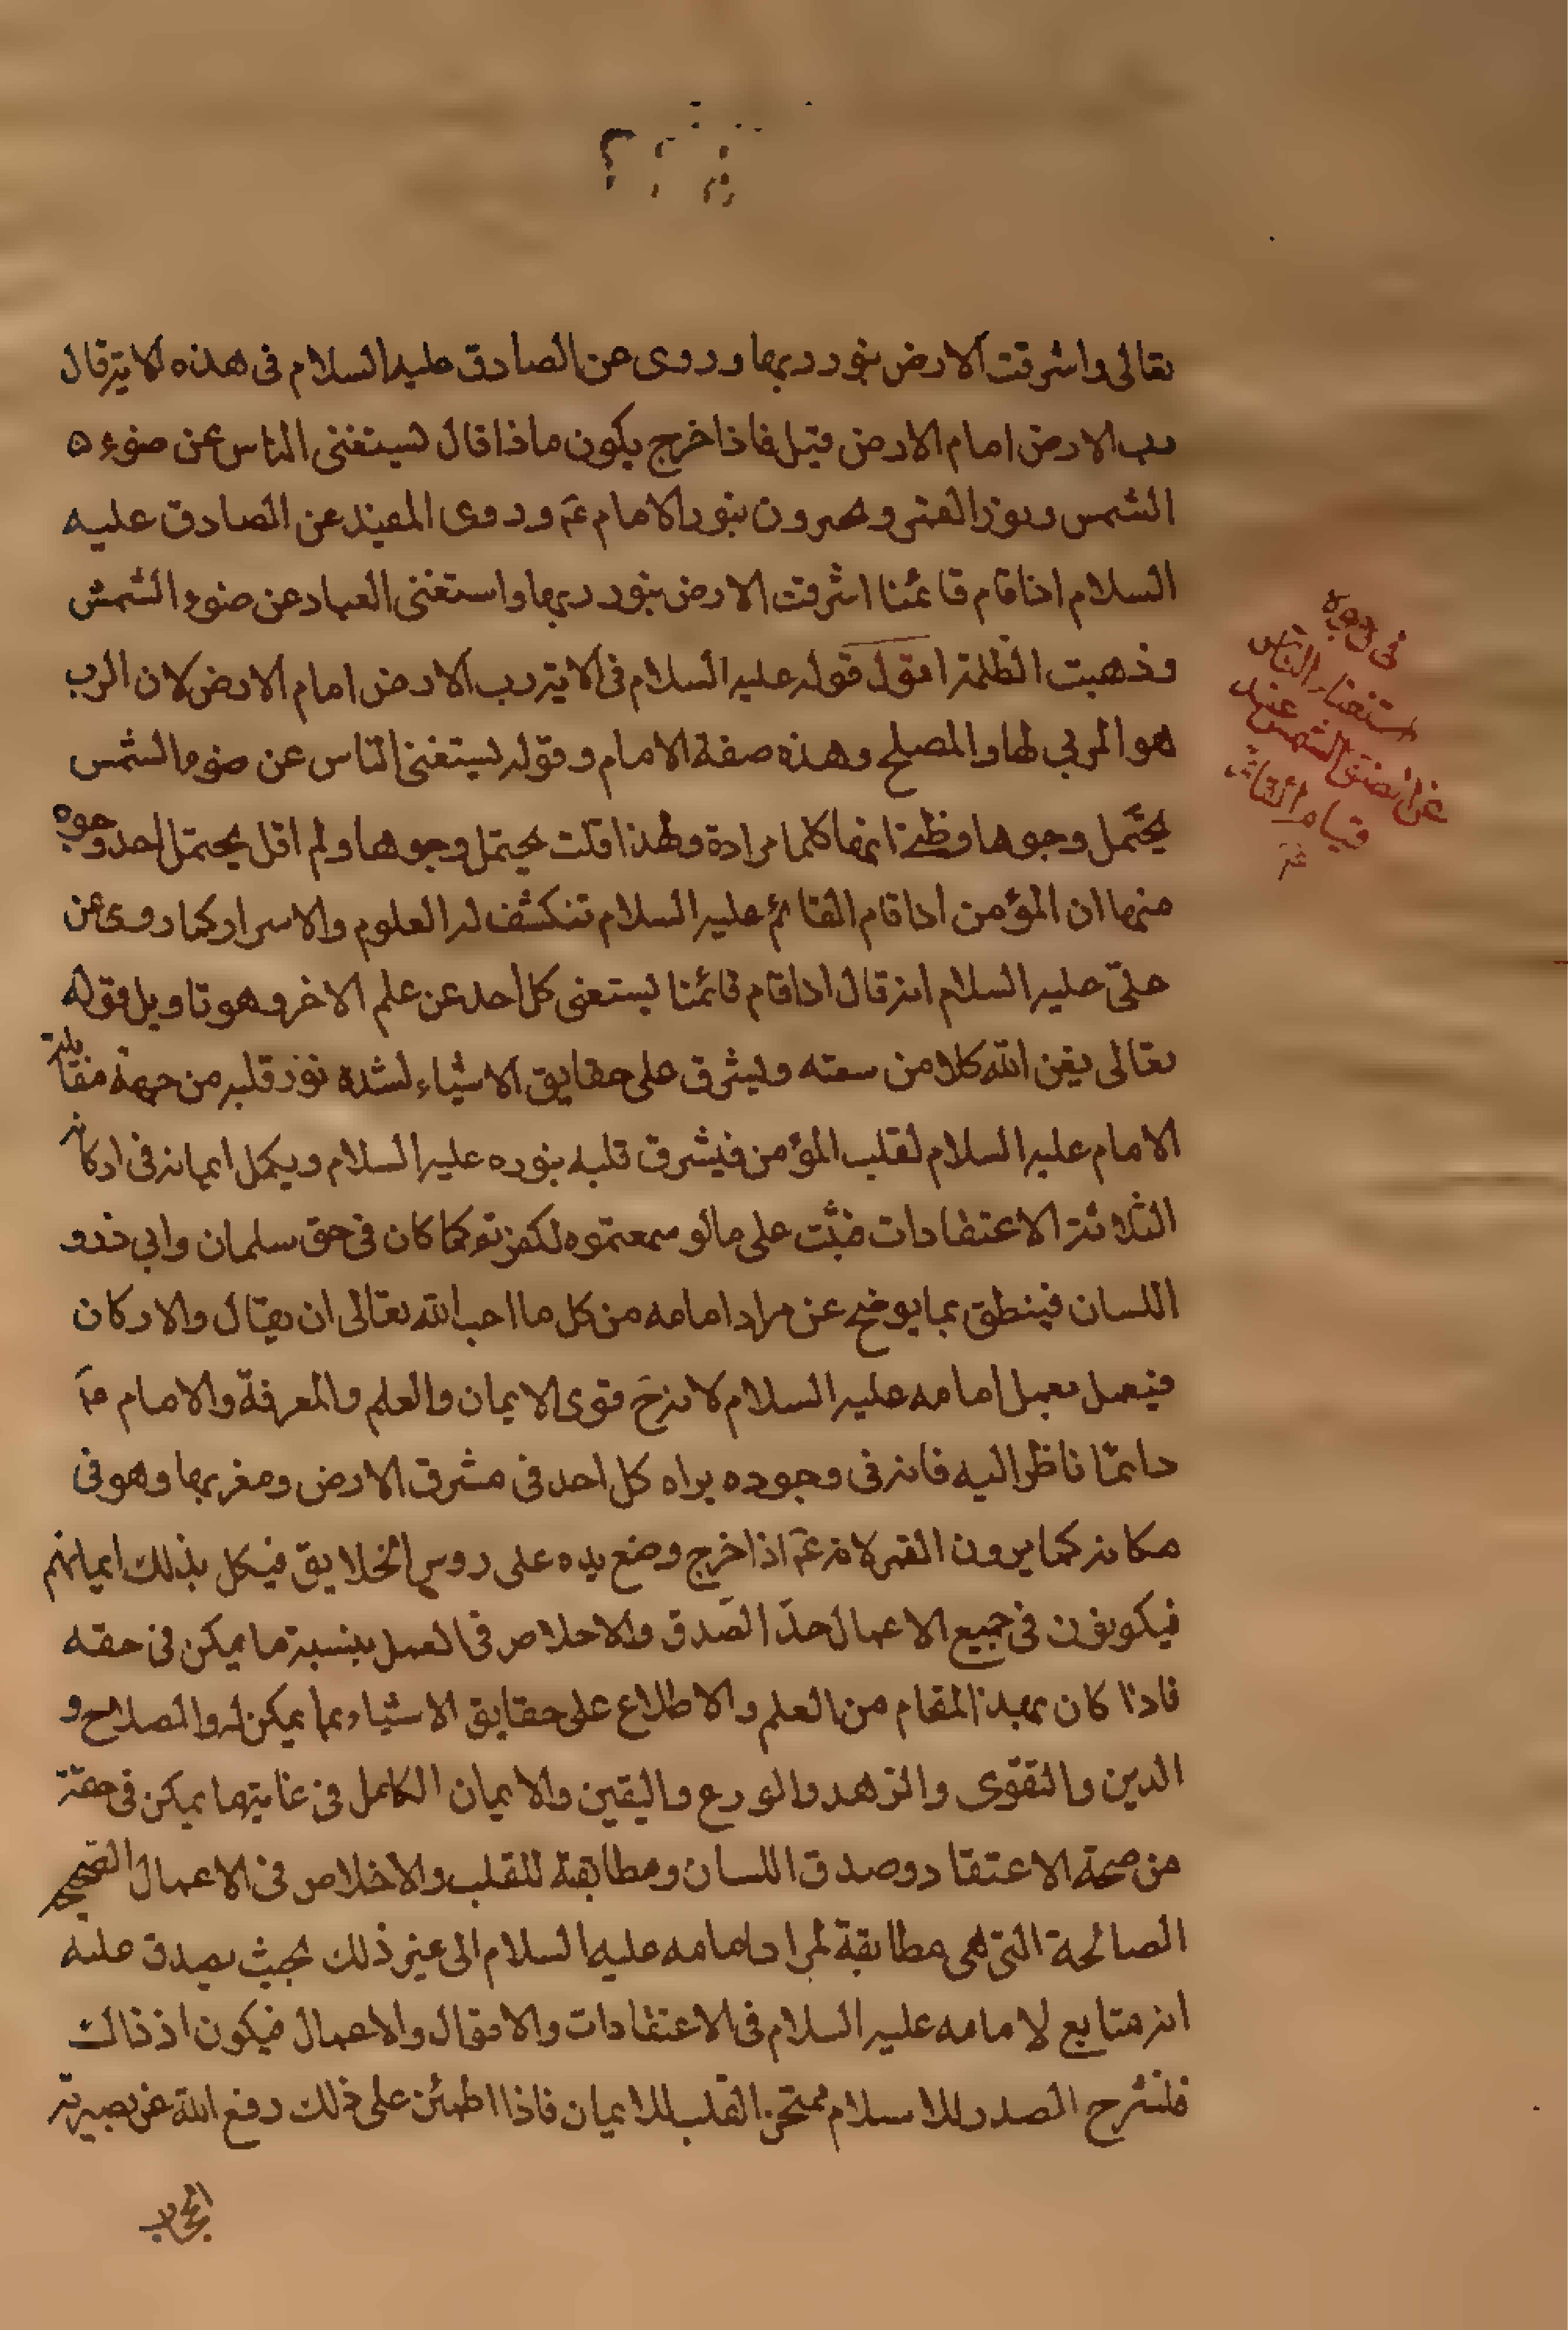 تعالى واشرقت الارض بنور ربها وروى عن الصادق عليه السلام فى هذه الاية قال
رب الارض امام الارض قيل فاذا خرج يكون ماذا قال يستغنى الناس عن ضوء
الشمس ونور القمر ويجتزون بنور الامام عم وروى المفيد عن الصادق عليه
السلام اذا قام قائمنا اشرقت الارض بنور ربها واستغنى العباد عن ضوء الشمس
وذهبت الظلمة اقول قوله عليه السلام فى الاية رب الارض امام الارض لان الرب
هو المربى لها والمصلح وهذه صفة الامام وقوله يستغنى الناس عن ضوء الشمس
يحتمل وجوها وظنى انها كلها مرادة ولهذا قلت يحتمل وجوها ولم اقل يحتمل احد وجوه
منها ان المؤمن اذا قام القائم عليه السلام تنكشف له العلوم والاسرار كما روى عن
على عليه السلام انه قال اذا قام قائمنا يستغنى كل احد عن علم الاخر وهو تاويل قوله
تعالى يغن الله كلا من سعته ويشرق على حقايق الاشياء لشدة نور قلبه من جهة مقابلة
الامام عليه السلام لقلب المؤمن فيشرق قلبه بنوره عليه السلام ويكمل ايمانه فى اركانه
الثلاثة الاعتقادات فيثبت على ما لو سمعتموه لكفرتم كما كان فى حق سلمان وابى ذر و
اللسان فينطق بما يوضح عن مراد امامه من كل ما احب الله تعالى ان يقال والاركان
فيعمل بعمل امامه عليه السلام لانه ح قوى الايمان والعلم والمعرفة والامام عم
دائما ناظر اليه فانه فى وجوده يراه كل احد فى مشرق الارض ومغربها وهو فى
مكانه كما يرون القمر لانه عم اذا خرج وضع يده على روس الخلايق فيكمل بذلك ايمانهم
فيكونون فى جميع الاعمال حد الصدق والاخلاص فى العمل بنسبة ما يمكن فى حقه
فاذا كان بهذا المقام من العلم والاطلاع على حقايق الاشياء بما يمكن له والصلاح و
الدين والتقوى والزهد والورع واليقين والايمان الكامل فى غاية ما يمكن فى حقه
من صحة الاعتقاد وصدق اللسان ومطابقة للقلب والاخلاص فى الاعمال الصحيحة
الصالحة التى هى مطابقة لمراد امامه عليه السلام الى غير ذلك بحيث يصدق عليه
انه متابع لامامه عليه السلام فى الاعتقادات والاقوال والاعمال فيكون اذ ذاك
منشرح الصدر للاسلام ممتحن القلب للايمان فاذا اطمئن على ذلك رفع الله عن بصيرته
الحجاب
فى وجوه
استغناء الناس
عن ضوء الشمس عند
قيام القائم
عم